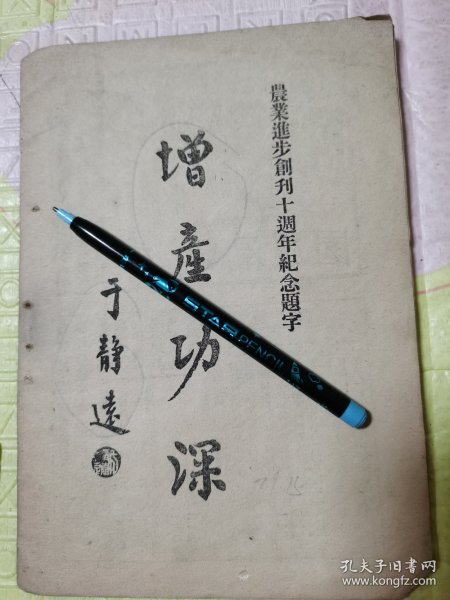 農業進步創刊十週年紀念題字
增產功深
于靜遠
STAR PENCIL
孔夫子旧书网
www.kongfz.com